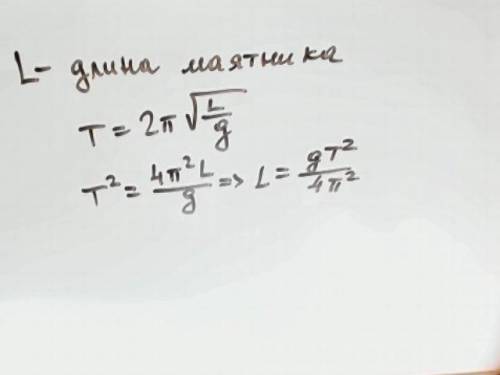 L - длина маятника
T = 2π √(L/g)
T² = 4π²L/g => L = gT²/4π²